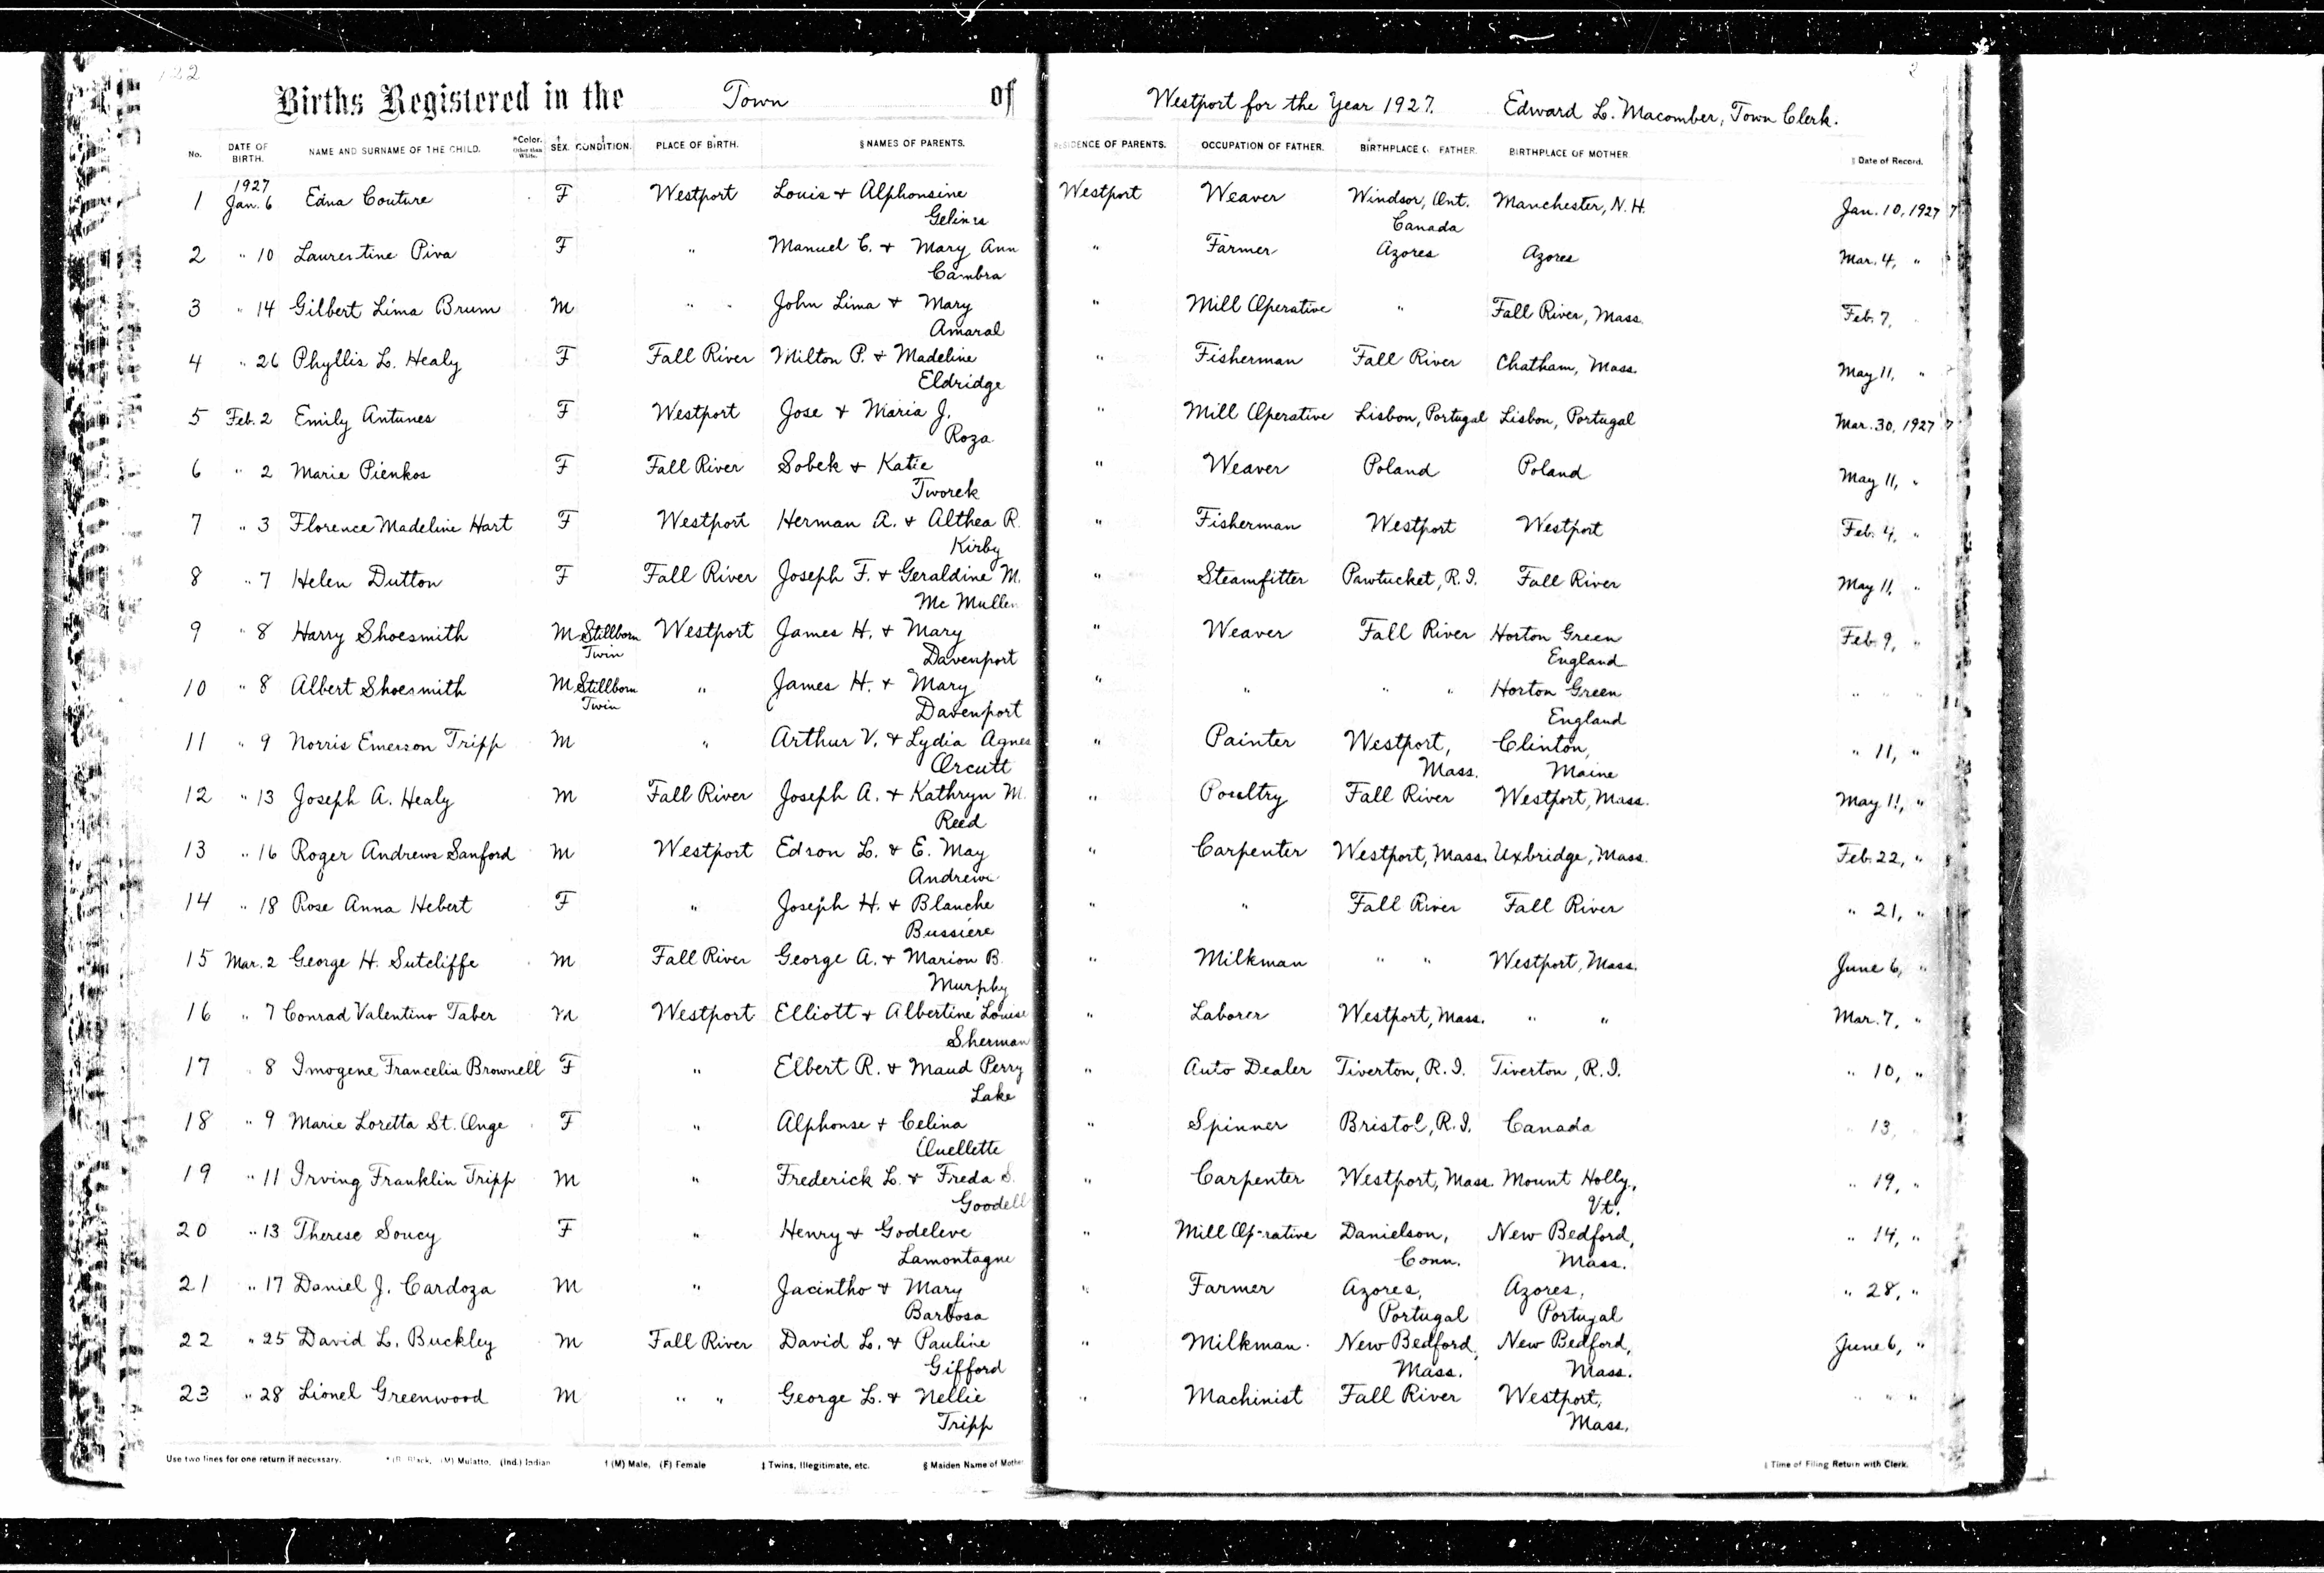 122
Births Registered in the Town of Westport for the Year 1927. Edward L. Macomber, Town Clerk.
No. DATE OF BIRTH. NAME AND SURNAME OF THE CHILD. *Color. Other than White. † SEX. ‡ CONDITION. PLACE OF BIRTH. § NAMES OF PARENTS. RESIDENCE OF PARENTS. OCCUPATION OF FATHER. BIRTHPLACE FATHER. BIRTHPLACE OF MOTHER. Date of Record.
1927
1 Jan. 6 Edna Couture F Westport Louis & Alphonsine Westport Weaver Windsor, Ont. Manchester, N.H. Jan. 10, 1927
Gelinas Canada
2 " 10 Laurentine Piva F " Manuel C. & Mary Ann " Farmer Azores Azores Mar. 4, "
Cambra
3 " 14 Gilbert Lima Brum M " John Lima & Mary " Mill Operative " Fall River, Mass. Feb. 7,
Amaral
4 " 26 Phyllis L. Healy F Fall River Milton P. & Madeline " Fisherman Fall River Chatham, Mass. May 11, "
Eldridge
5 Feb. 2 Emily Antunes F Westport Jose & Maria J. " Mill Operative Lisbon, Portugal Lisbon, Portugal Mar. 30, 1927
Roza
6 " 2 Marie Pienkos F Fall River Sobek & Katie " Weaver Poland Poland May 11, "
Tworek
7 " 3 Florence Madeline Hart F Westport Herman A. & Althea R. " Fisherman Westport Westport Feb. 4, "
Kirby
8 " 7 Helen Dutton F Fall River Joseph F. & Geraldine M. " Steamfitter Pawtucket, R.I. Fall River May 11, "
Mc Mullen
9 " 8 Harry Shoesmith M Stillborn Westport James H. & Mary " Weaver Fall River Horton Green Feb. 9, "
Twin Davenport England
10 " 8 Albert Shoesmith M Stillborn " James H. & Mary " " " " Horton Green " " "
Twin Davenport England
11 " 9 Norris Emerson Tripp M " Arthur V. & Lydia Agnes " Painter Westport, Clinton, " 11, "
Orcutt Mass. Maine
12 " 13 Joseph A. Healy M Fall River Joseph A. & Kathryn M. " Poultry Fall River Westport, Mass. May 11, "
Reed
13 " 16 Roger Andrews Sanford M Westport Edson L. & E. May " Carpenter Westport, Mass. Uxbridge, Mass. Feb. 22, "
Andrews
14 " 18 Rose Anna Hebert F " Joseph H. & Blanche " " Fall River Fall River " 21, "
Bussiere
15 Mar. 2 George H. Sutcliffe M Fall River George A. & Marion B. " Milkman " " Westport, Mass. June 6, "
Murphy
16 " 7 Conrad Valentino Taber M Westport Elliott & Albertine Louise " Laborer Westport, Mass. " " Mar. 7, "
Sherman
17 " 8 Imogene Francelia Brownell F " Elbert R. & Maud Perry " Auto Dealer Tiverton, R.I. Tiverton, R.I. " 10, "
Lake
18 " 9 Marie Loretta St. Onge F " Alphonse & Celina " Spinner Bristol, R.I. Canada " 13,
Ouellette
19 " 11 Irving Franklin Tripp M " Frederick L. & Freda S. " Carpenter Westport, Mass. Mount Holly, " 19, "
Goodell Vt.
20 " 13 Therese Soucy F " Henry & Godeleve " Mill Operative Danielson, New Bedford, " 14, "
Lamontagne Conn. Mass.
21 " 17 Daniel J. Cardoza M " Jacintho & Mary " Farmer Azores, Azores, " 28, "
Barbosa Portugal Portugal
22 " 25 David L. Buckley M Fall River David L. & Pauline " Milkman New Bedford, New Bedford, June 6, "
Gifford Mass. Mass.
23 " 28 Lionel Greenwood M " " George L. & Nellie " Machinist Fall River Westport, " " "
Tripp Mass.
Use two lines for one return if necessary. * (B) Black, (M) Mulatto, (Ind.) Indian † (M) Male, (F) Female ‡ Twins, Illegitimate, etc. § Maiden Name of Mother Time of Filing Return with Clerk.